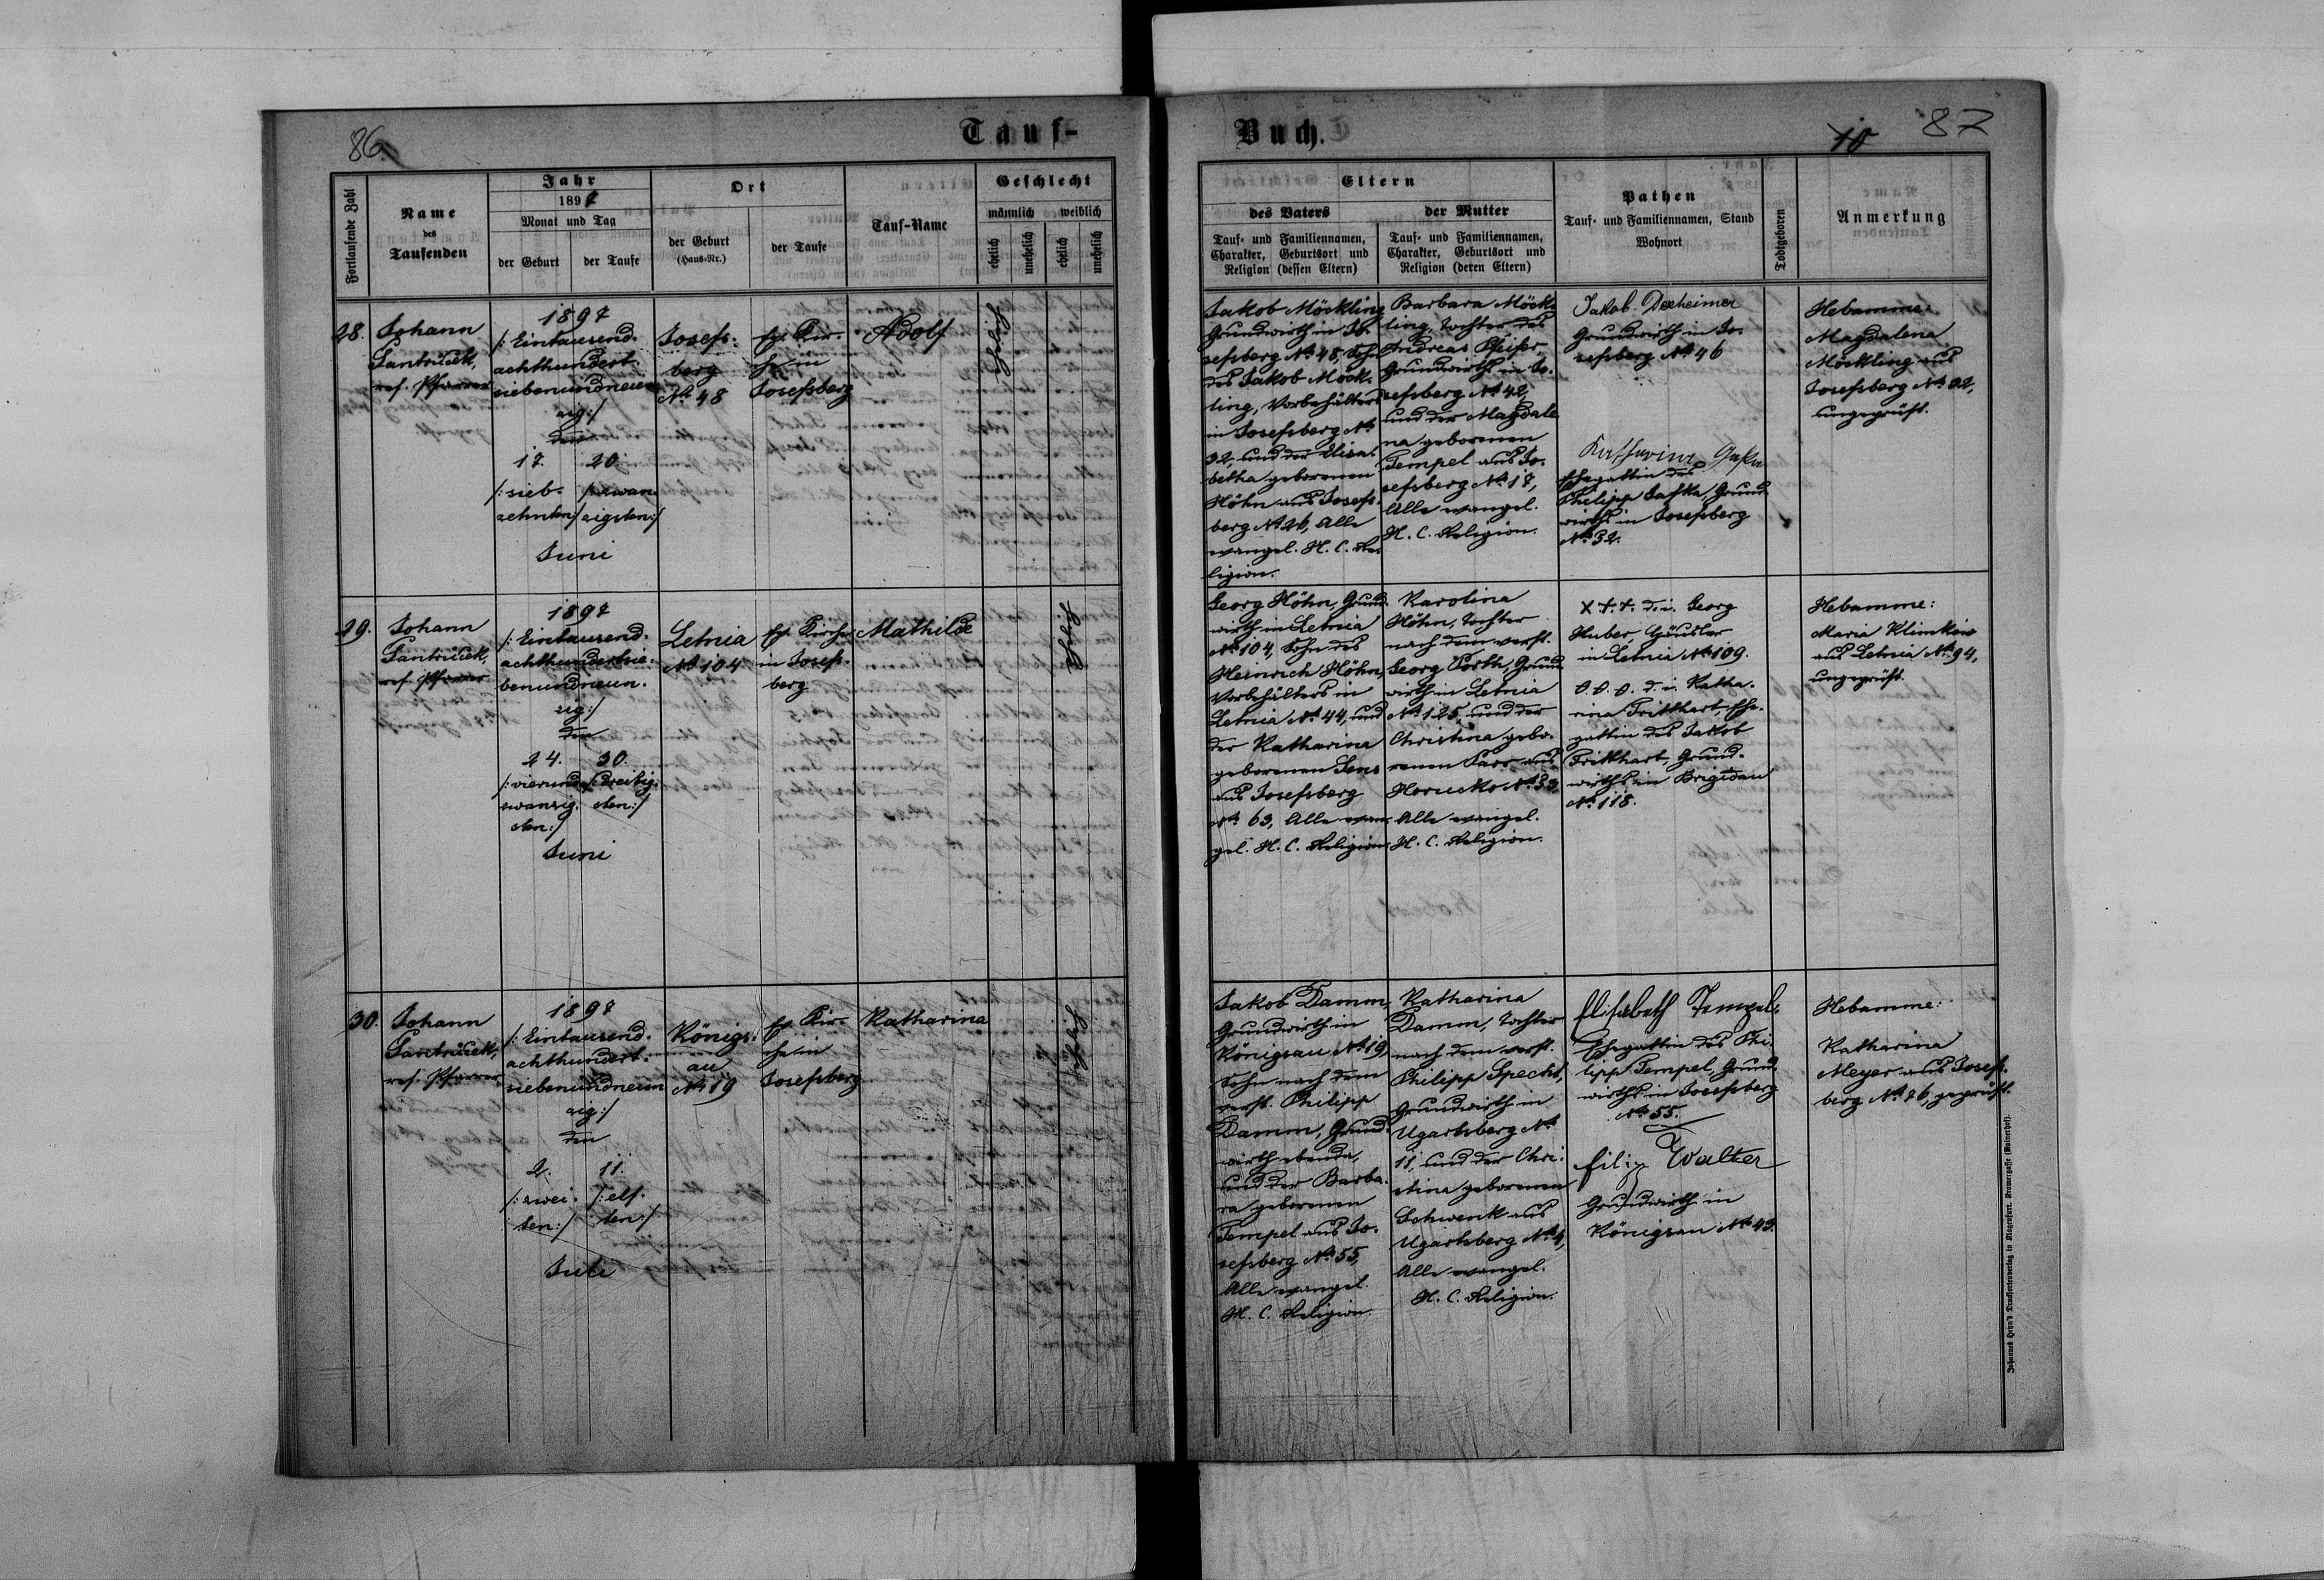 86.
Tauf-
Fortlaufende Zahl
Name
des
Taufenden
Jahr
1897
Monat und Tag
der Geburt
der Taufe
Ort
der Geburt
(Haus-Nr.)
der Taufe
Tauf-Name
Geschlecht
männlich
weiblich
ehelich
unehelich
ehelich
unehelich
28.
Johann
Santrůček,
ref. Pfarrer
1897
/: Eintausend-
achthundert-
siebenundneun-
zig:/
den
17. 20.
/: sieb- /: zwan-
zehnten:/ zigsten:/
Juni
Josefs-
berg
No 48
ev. Kir-
che in
Josefsberg
Adolf
ehelich
29.
Johann
Santrůček,
ref. Pfarrer
1897
/: Eintausend-
achthundertsie-
benundneun-
zig:/
den
24. 30.
/: vierund- /: dreißig-
zwanzig- sten:/
sten:/
Juni
Letnia
No 104
ev. Kirche
in Josefs-
berg
Mathilde
ehelich
30.
Johann
Santrůček,
ref. Pfarrer
1897
/: Eintausend-
achthundert-
siebenundneun
zig:/
den
2. 11.
/: zwei- /: elf-
ten:/ ten:/
Juli
Königs-
au
No 19
ev. Kir-
che in
Josefsberg
Katharina
ehelich
Buch.
10 87
Eltern
des Vaters
der Mutter
Tauf- und Familiennamen,
Charakter, Geburtsort und
Religion (dessen Eltern)
Tauf- und Familiennamen,
Charakter, Geburtsort und
Religion (deren Eltern)
Pathen
Tauf- und Familiennamen, Stand
Wohnort
Todtgeboren
Anmerkung
Jakob Möckling
Grundwirth in Jo-
sefsberg No 48, Sohn
des Jakob Möck-
ling, Vorbehälters
in Josefsberg No
32, und der Elisa-
betha geborenen
Höhn aus Josefs-
berg No 26, Alle
evangel. H. C. Re-
ligion.
Barbara Möck-
ling, Tochter des
Andreas Pfeifer,
Grundwirths in Jo-
sefsberg No 42,
und der Magdale
na geborenen
Tempel aus Jo-
sefsberg No 17,
Alle evangel.
H. C. Religion.
Jakob Dexheimer
Grundwirth in Jo-
sefsberg No 46
Katharina
Ehegattin des
Philipp Safka, Grund-
wirths in Josefsberg
No 32.
Hebamme:
Magdalena
Möckling aus
Josefsberg No 92,
ungeprüft.
Georg Höhn, Grund-
wirth in Letnia
No 104, Sohn des
Heinrich Höhn,
Vorbehälters in
Letnia No 44, und
der Katharina
geborenen Senz
aus Josefsberg
No 63, Alle evan-
gel. H. C. Religion.
Karolina
Höhn, Tochter
nach dem verst.
Georg Porth, Grund-
wirth in Letnia
No 125, und der
Christina gebo-
renen aus
Horucko No 33,
Alle evangel.
H. C. Religion.
X +. +. d. i. Georg
Huber, Häusler
in Letnia No 109.
O. O. O. d. i. Katha-
rina Fritthart, Ehe-
gattin des Jakob
Fritthart, Grund-
wirths in Brigidau
No 118.
Hebamme:
Maria Klimków
aus Letnia No 94,
ungeprüft.
Jakob Damm,
Grundwirth in
Königsau No 19
Sohn nach dem
verst. Philipp
Damm, Grund-
wirth ebenda,
und der Barba-
ra geborenen
Tempel aus Jo-
sefsberg No 55,
Alle evangel.
H. C. Religion.
Katharina
Damm, Tochter
nach dem verst.
Philipp Specht,
Grundwirth in
Ugartsberg No
11, und der Chri-
stina geborenen
Schwenk aus
Ugartsberg No 4,
Alle evangel.
H. C. Religion.
Elisabeth Tempel,
Ehegattin des Phi-
lipp Tempel, Grund-
wirths in Josefsberg
No 55.
Filip Walter
Grundwirth in
Königsau No 43.
Hebamme:
Katharina
Meyer aus Josefs-
berg No 86, geprüft.
Johannes Heyn's Drucksortenverlag in Klagenfurt. Kramergasse (Rainerhof).